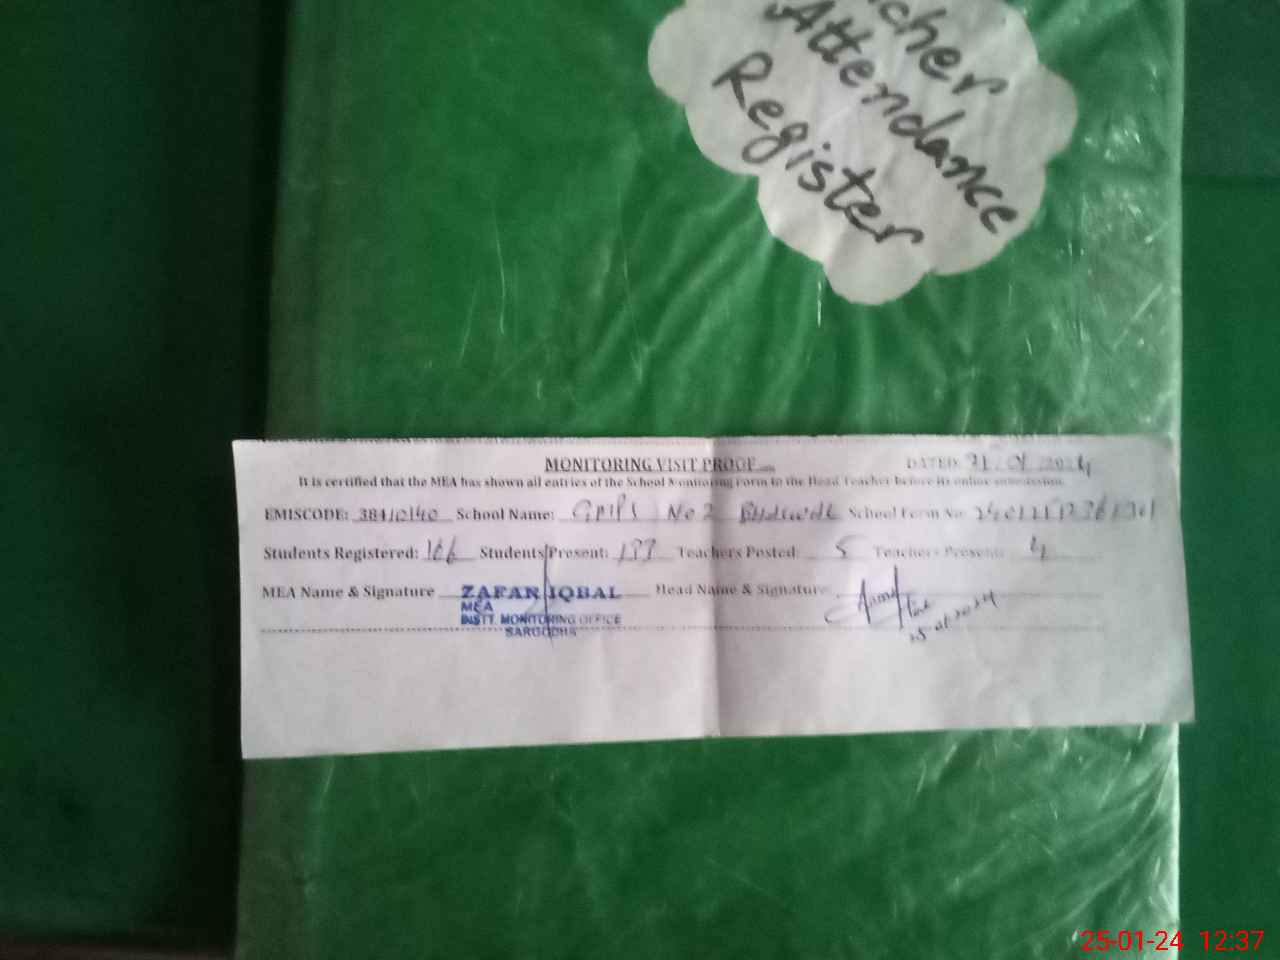 Attendance
Register
MONITORING VISIT PROOF
DATED:
It is certified that the MEA has shown all entries of the School Monitoring Form to the Head Teacher before its online submission.
EMISCODE: 38410140 School Name: No 2 School Form No:
Students Registered: 166 Students Present: Teachers Posted: 5 Teachers Present: 4
MEA Name & Signature ZAFAR IQBAL Head Name & Signature
MEA
DISTT. MONITORING OFFICE
SARGODHA
25-01-24 12:37